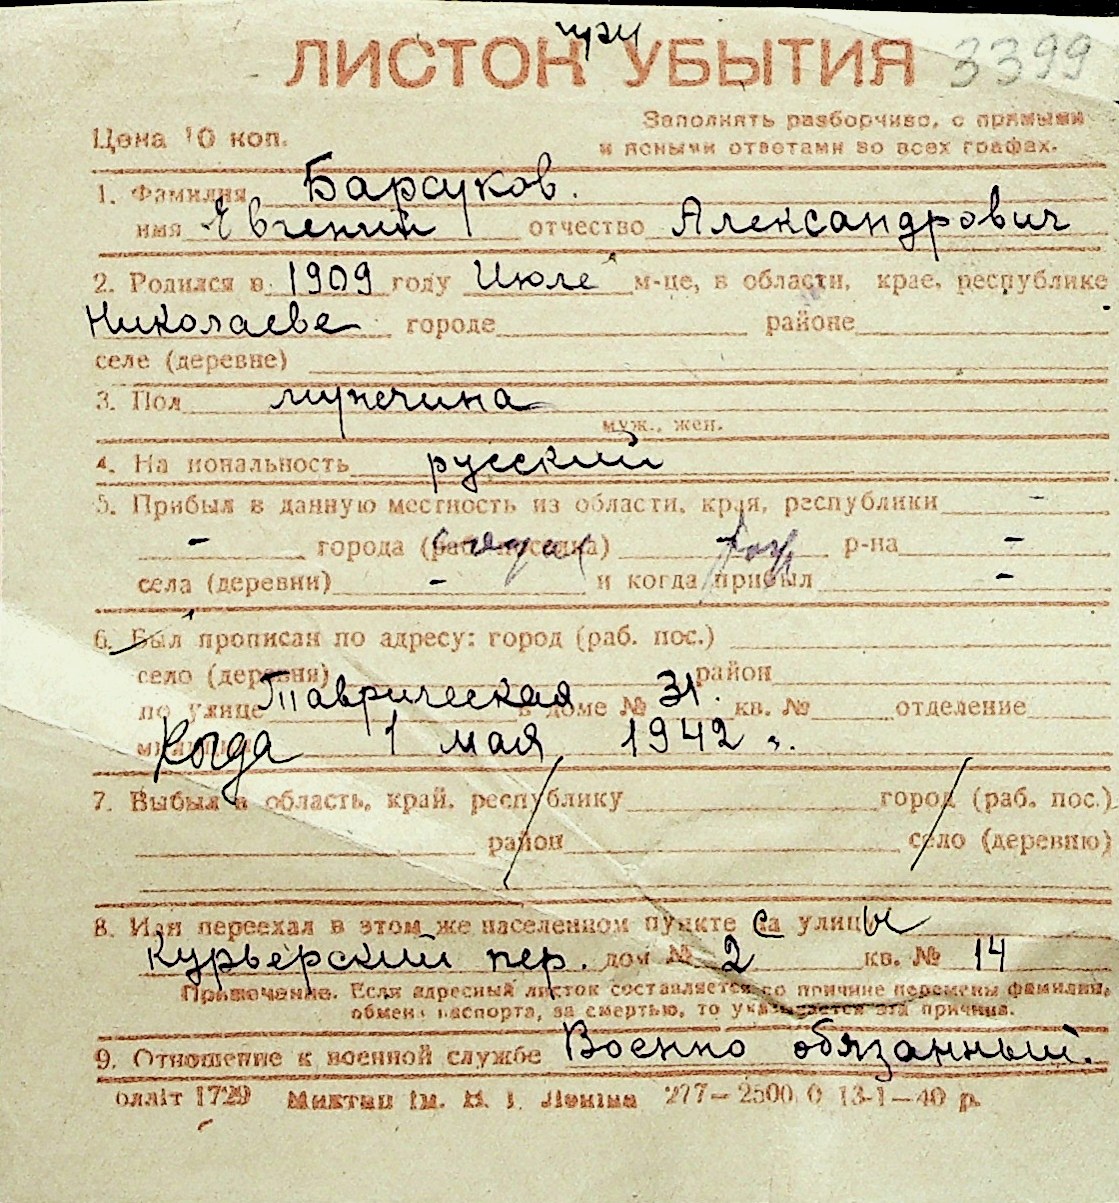 при
ЛИСТОК УБЫТИЯ 3399
Цена 10 коп.
Заполнять разборчиво, с прямыми
и ясными ответами во всех графах.
1. Фамилия Барсуков.
имя Евгений отчество Александрович
2. Родился в 1909 году Июле м-це, в области, крае, республике
Николаеве городе районе
селе (деревне)
3. Пол мужчина
муж., жен.
4. Национальность русский
5. Прибыл в данную местность из области, края, республики -
- города (раб. поселка) р-на -
села (деревни) - и когда прибыл -
6. Был прописан по адресу: город (раб. пос.)
село (деревня) район
по улице Таврическая в доме № 31. кв. № отделение
милиции Когда 1 мая 1942
7. Выбыл в область, край, республику город (раб. пос.)
район село (деревню)
8. Или переехал в этом же населенном пункте са улицы
Курьерский пер. дом № 2 кв. № 14
Примечание. Если адресный листок составляется по причине перемены фамилии,
обмена паспорта, за смертью, то указывается эта причина.
9. Отношение к военной службе Военно обязанный.
оллiт 1729 Миктип iм. В. I. Ленiна 277—2500 0 13-1—40 р.